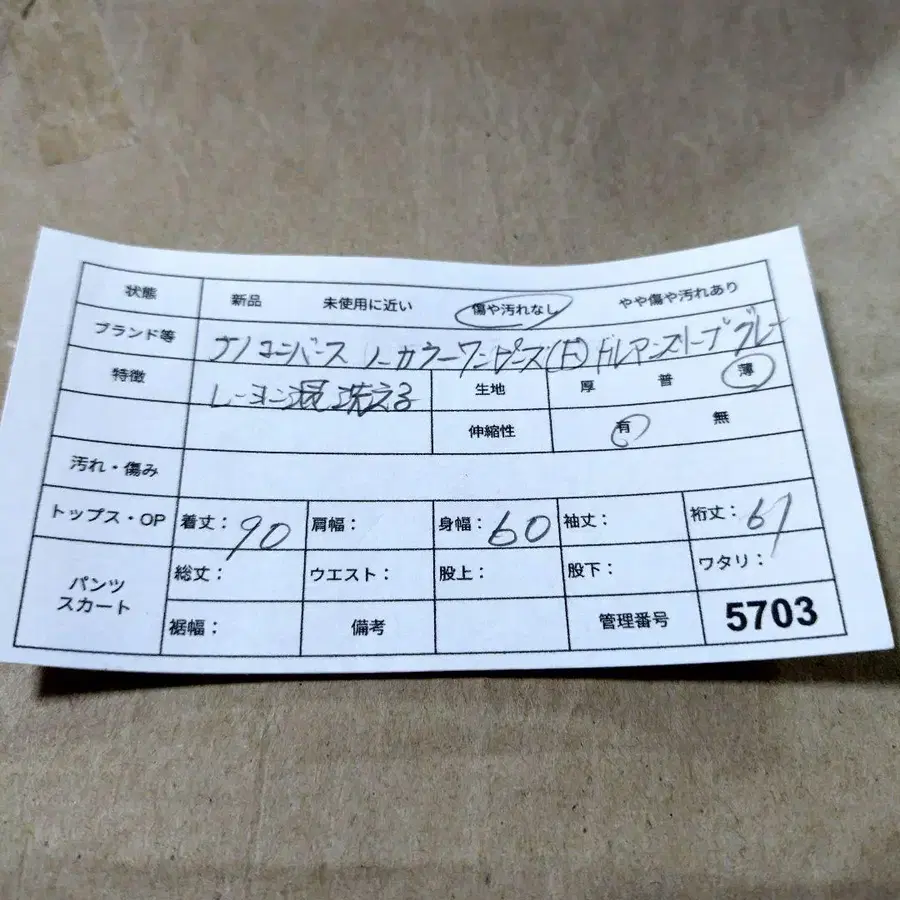 状態 新品 未使用に近い 傷や汚れなし やや傷や汚れあり
ブランド等 ナノユニバース ノーカラーワンピース(F) ドルマンスリーブ グレー
特徴 レーヨン混 洗える 生地 厚 普 薄
伸縮性 有 無
汚れ・傷み
トップス・OP 着丈: 90 肩幅: 身幅: 60 袖丈: 裄丈: 67
パンツ スカート 総丈: ウエスト: 股上: 股下: ワタリ:
裾幅; 備考 管理番号 5703